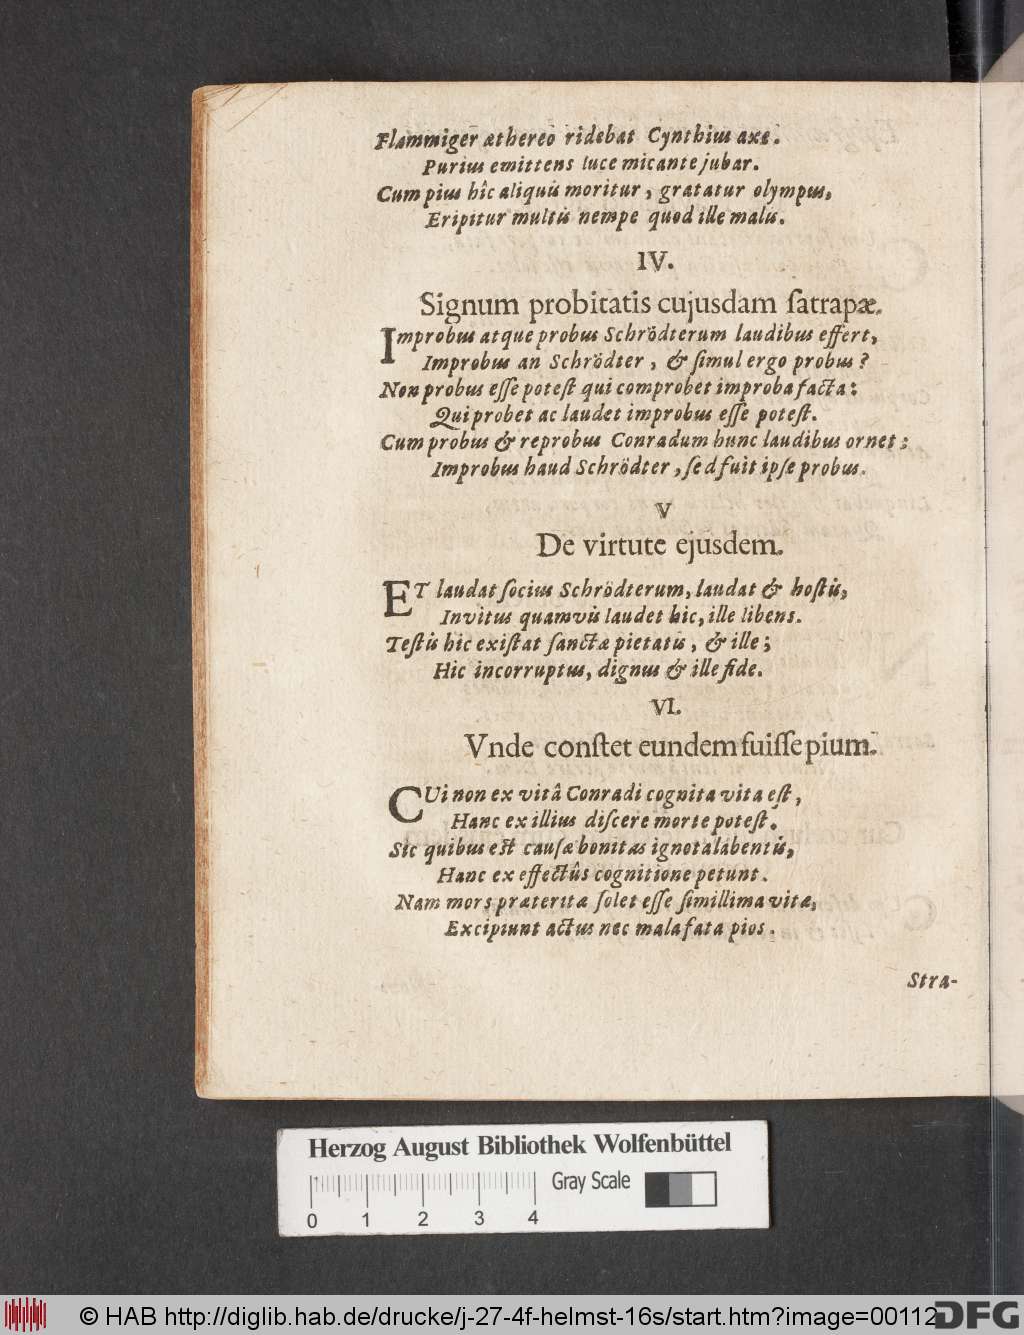 Flammiger æthereo ridebat Cynthius axe.
Purius emittens luce micante jubar.
Cum pius hîc aliquis moritur, gratatur olympus,
Eripitur multis nempe quod ille malis.
IV.
Signum probitatis cujusdam ſatrapæ.
Improbus atque probus Schrödterum laudibus effert,
Improbus an Schrödter, & ſimul ergo probus?
Non probus eſſe poteſt qui comprobet improba facta:
Qui probet ac laudet improbus eſſe poteſt.
Cum probus & reprobus Conradum hunc laudibus ornet;
Improbus haud Schrödter, ſed fuit ipſe probus.
V
De virtute ejusdem.
ET laudat ſocius Schrödterum, laudat & hoſtis,
Invitus quamvis laudet hic, ille libens.
Teſtis hic exiſtat ſanctæ pietatis, & ille;
Hic incorruptus, dignus & ille fide.
VI.
Vnde conſtet eundem fuiſſe pium.
CUi non ex vitâ Conradi cognita vita eſt,
Hanc ex illius diſcere morte poteſt.
Sic quibus est cauſæ bonitas ignota labentis,
Hanc ex effectûs cognitione petunt.
Nam mors præteritæ ſolet eſſe ſimillima vitæ,
Excipiunt actus nec mala fata pios.
Stra-
Herzog August Bibliothek Wolfenbüttel
Gray Scale
0 1 2 3 4
© HAB http://diglib.hab.de/drucke/j-27-4f-helmst-16s/start.htm?image=00112
DFG